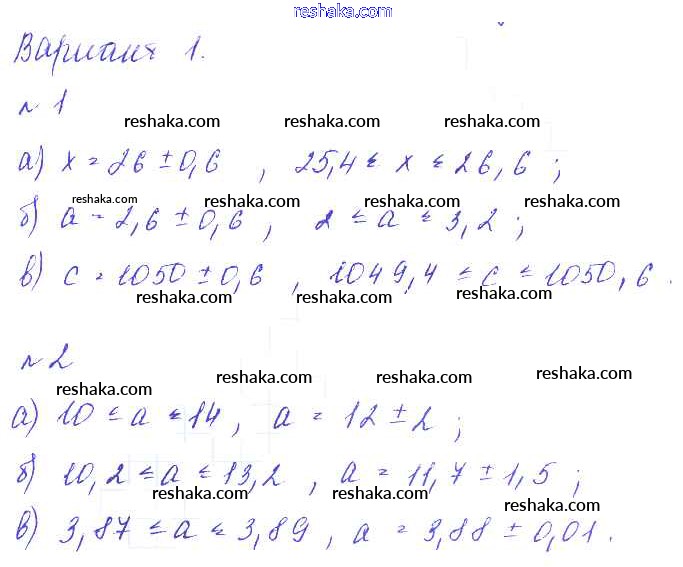 reshaka.com
Вариант 1.
№ 1
reshaka.com reshaka.com reshaka.com
а) x = 26 ± 0,6 , 25,4 ≤ x ≤ 26,6 ;
reshaka.com reshaka.com reshaka.com reshaka.com
б) a = 2,6 ± 0,6 , 2 ≤ a ≤ 3,2 ;
в) c = 1050 ± 0,6 , 1049,4 ≤ c ≤ 1050,6 .
reshaka.com reshaka.com reshaka.com
№ 2
reshaka.com reshaka.com reshaka.com reshaka.com
а) 10 ≤ a ≤ 14 , a = 12 ± 2 ;
reshaka.com reshaka.com reshaka.com
б) 10,2 ≤ a ≤ 13,2 , a = 11,7 ± 1,5 ;
reshaka.com reshaka.com reshaka.com
в) 3,87 ≤ a ≤ 3,89 , a = 3,88 ± 0,01 .